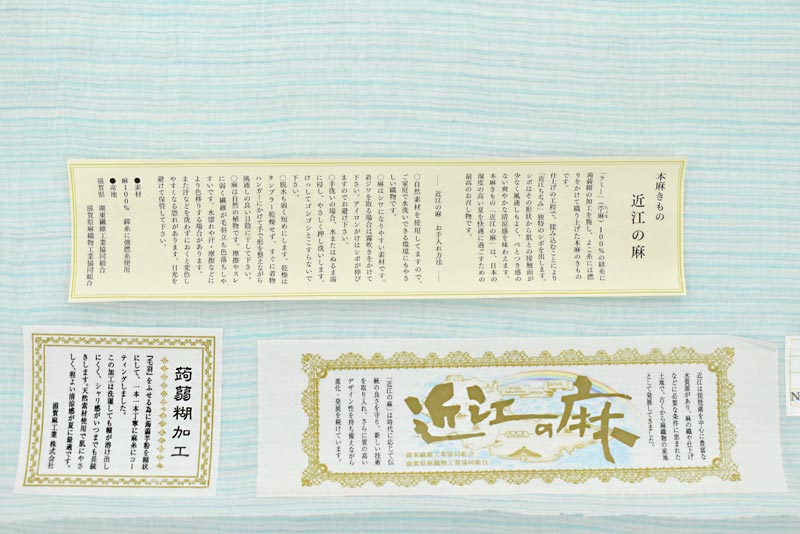 本麻きもの
近江の麻
「ラミー」（苧麻）100％の経糸に
蒟蒻糊の加工を施し、よこ糸には撚
りをかけて織り上げた本麻のきもの
です。
仕上げの工程で、揉み込むことにより
「近江ちぢみ」独特のシボを出します。
シボはその形状から肌との接触面が
少なく風通しもよく、べとつき感の
ない爽やかな清涼感を味わえます。
本麻きもの「近江の麻」は、日本の
湿度の高い夏を快適に過ごすための
最高のお召し物です。
── 近江の麻 お手入れ方法 ──
○自然素材を使用してますので、
ご家庭で水洗いできる環境にもやさ
しい織物です。
○麻はシワになりやすい素材です。
着ジワを取る場合は霧吹きをかけて
下さい。アイロンがけはシボが伸び
ますのでお避け下さい。
○手洗いの場合、水またはぬるま湯
に浸し、やさしく押し洗いします。
けっしてゴシゴシとこすらないで
下さい。
○脱水も弱く短めにします。乾燥は
タンブラー乾燥せず、すぐに着物
ハンガーにかけて手で形を整えながら
風通しの良い日陰に干して下さい。
○麻は自然の植物です。摩擦やスレ
に弱く繊維が毛羽立ち色落ちしや
すいです。水濡れや汗・摩擦などに
より色移りする場合があります。
また汗などを洗わずにおくと変色し
やすくなる恐れがあります。日光を
避けて保管して下さい。
●素材
麻100％ 緯糸に強撚糸使用
●産地
滋賀県 湖東繊維工業協同組合
滋賀県麻織物工業協同組合
蒟蒻糊加工
「毛羽」をふせる為に蒟蒻芋粉を糊状
にして、一本一本丁寧に麻糸にコー
ティングしました。
この加工は洗濯しても糊が溶け出し
にくく、シャリ感がいつまでも長続
きします。天然素材使用で肌にやさ
しく、程よい清涼感が夏に最適です。
滋賀麻工業 株式会社
近江は琵琶湖を中心に豊富な
水資源があり、麻の織や仕上げ
などに必要な条件に恵まれた
土地で、古くから麻織物の産地
として発展してきました。
近江の麻
「近江の麻」は時代に応じて伝
統の良さを守り、新しい技術
を取り入れ、さらに質の高い
デザイン性を持ち備えながら
進化・発展を続けています。
湖東繊維工業協同組合
滋賀県麻織物工業協同組合
N